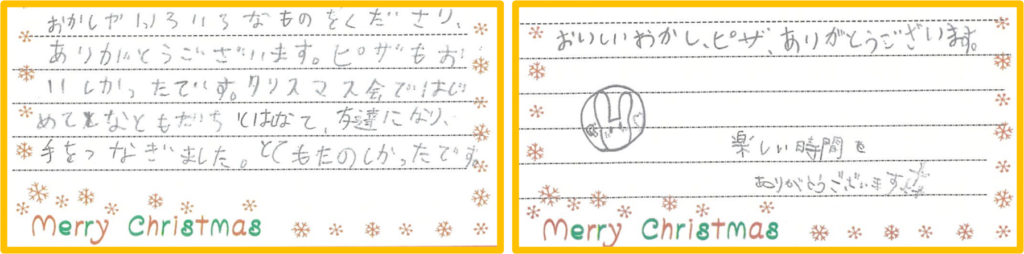 おかしやいろいろなものをくださり、
ありがとうございます。ピザもお
いしかったです。クリスマス会ではじ
めて
なともだち
とはなて、友達になり、
手をつなぎました。とてもたのしかったです
Merry Christmas
おいしいおかし、ピザ、ありがとうございます。
楽しい時間を
ありがとうございます
Merry Christmas